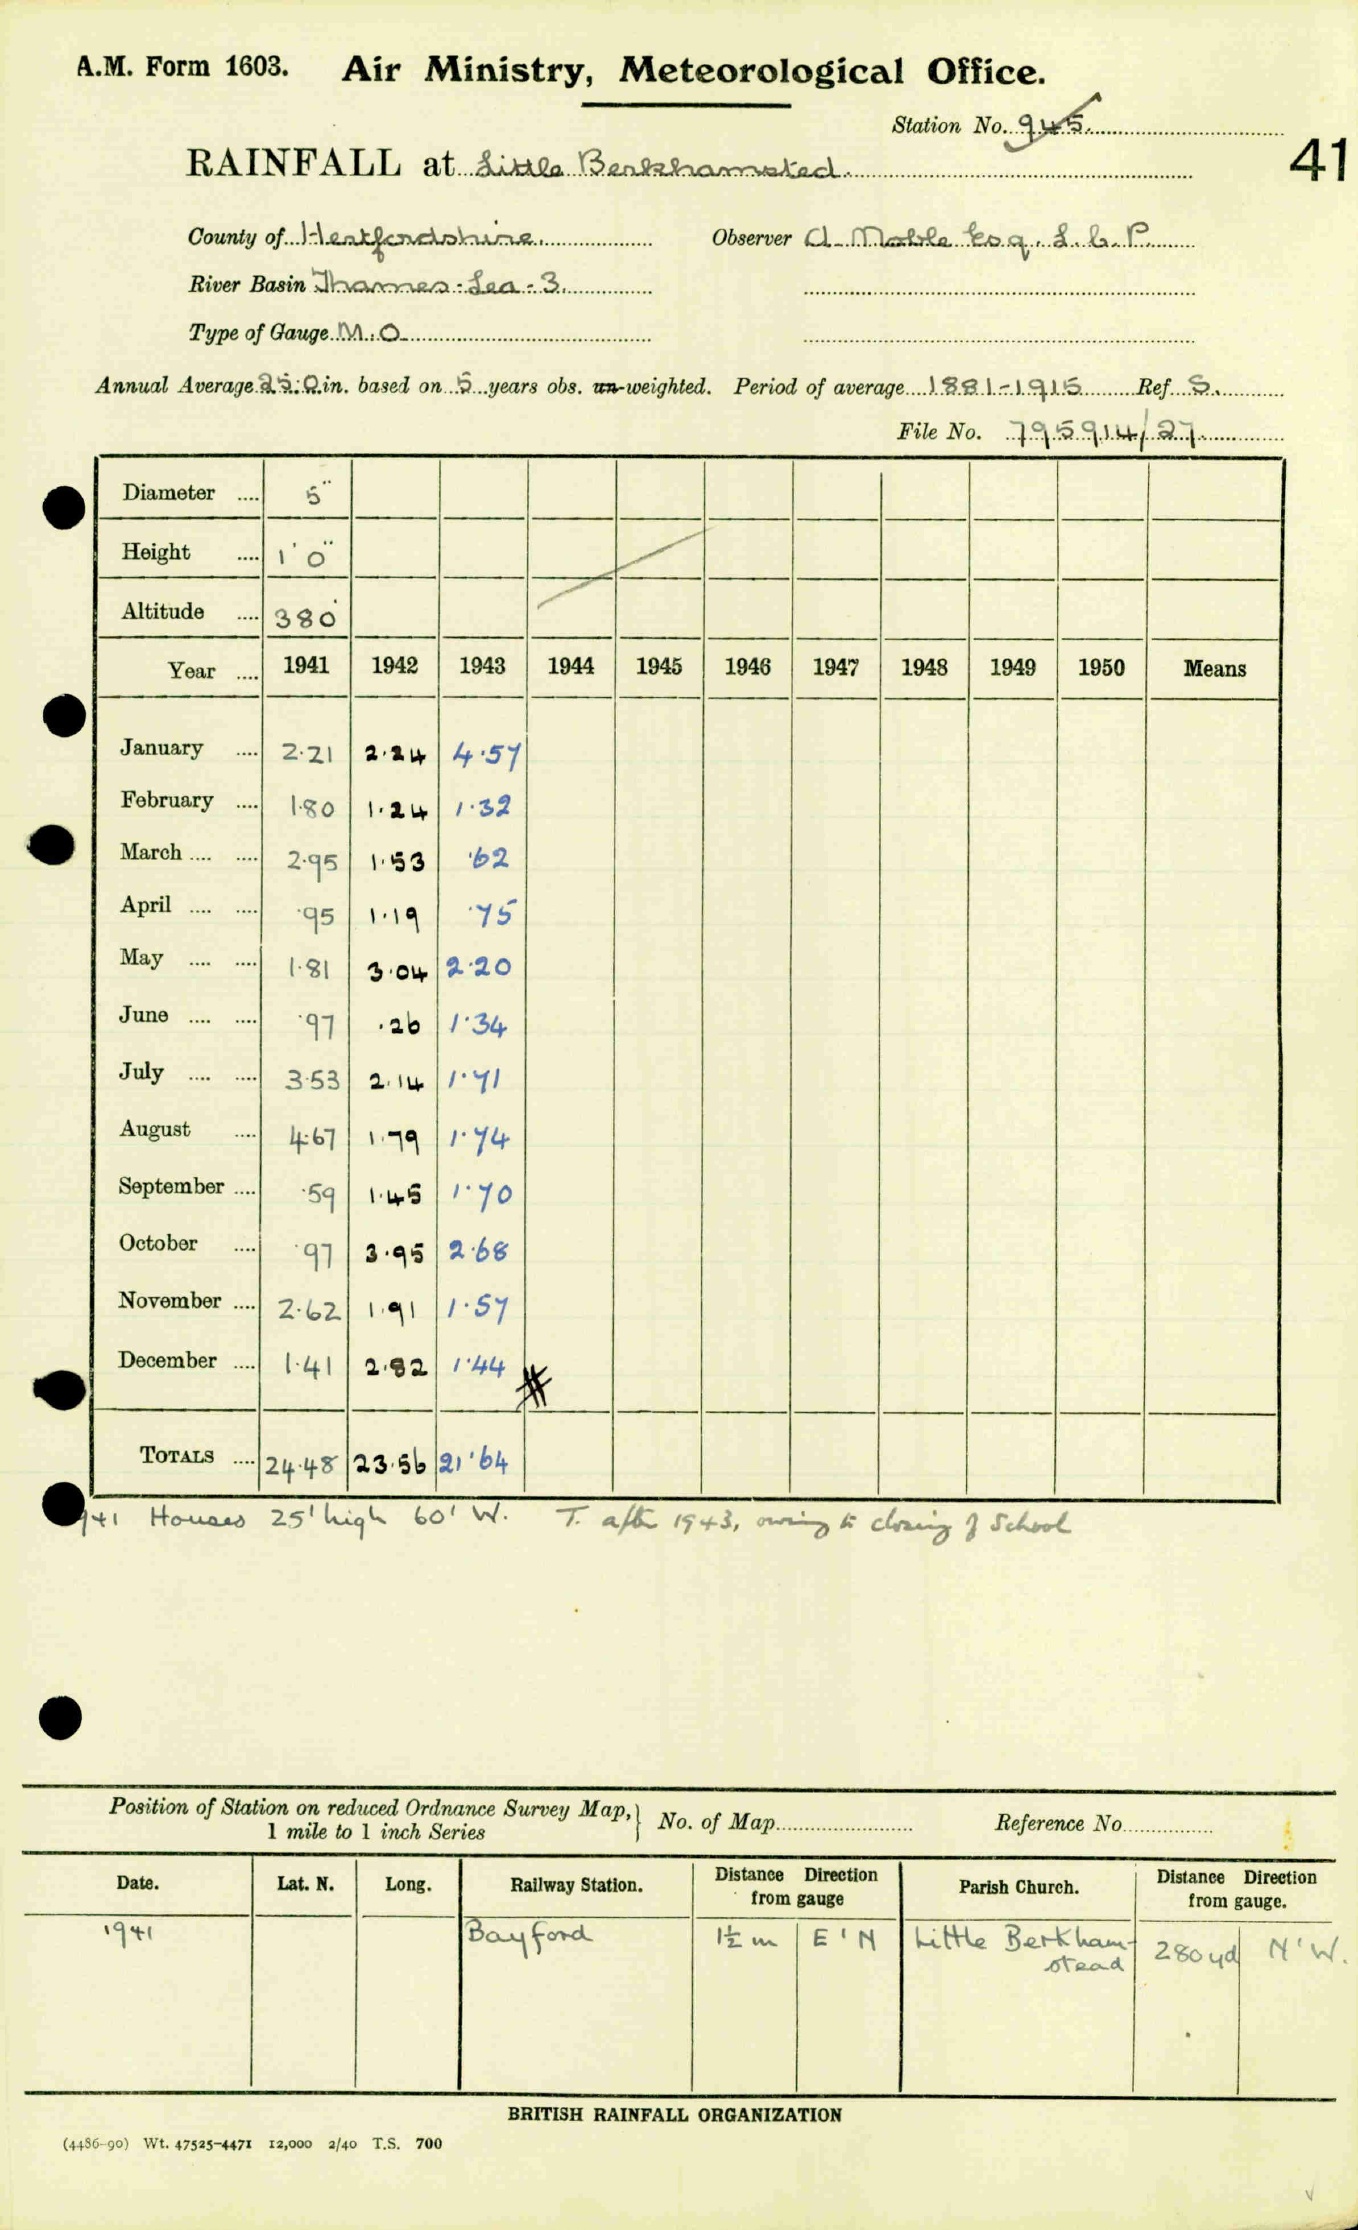 A.M. Form 1603. Air Ministry, Meteorological Office.
Station No. 945.
41
RAINFALL at Little Berkhamsted.
County of Hertfordshire. Observer A. Moble Esq. L.C.P.
River Basin Thames-Lea-3.
Type of Gauge M.O
Annual Average 25.0 in. based on 5 years obs. un-weighted. Period of average 1881-1915 Ref S.
File No. 795914/27
Diameter .... 5"
Height .... 1' 0"
Altitude .... 380'
Year .... 1941 1942 1943 1944 1945 1946 1947 1948 1949 1950 Means
January .... 2.21 2.24 4.57
February .... 1.80 1.24 1.32
March .... .... 2.95 1.53 .62
April .... .... .95 1.19 .75
May .... .... 1.81 3.04 2.20
June .... .... .97 .26 1.34
July .... .... 3.53 2.14 1.71
August .... 4.67 1.79 1.74
September .... .59 1.45 1.70
October .... .97 3.95 2.68
November .... 2.62 1.91 1.57
December .... 1.41 2.82 1.44
TOTALS .... 24.48 23.56 21.64
941 Houses 25' high 60' W. T. after 1943, owing to closing of School
Position of Station on reduced Ordnance Survey Map, } No. of Map Reference No
1 mile to 1 inch Series
Date. Lat. N. Long. Railway Station. Distance Direction from gauge Parish Church. Distance Direction from gauge.
1941 Bayford 1½ m E'N Little Berkham- 280 yd N'W.
stead
BRITISH RAINFALL ORGANIZATION
(4486-90) Wt. 47525-4471 12,000 2/40 T.S. 700